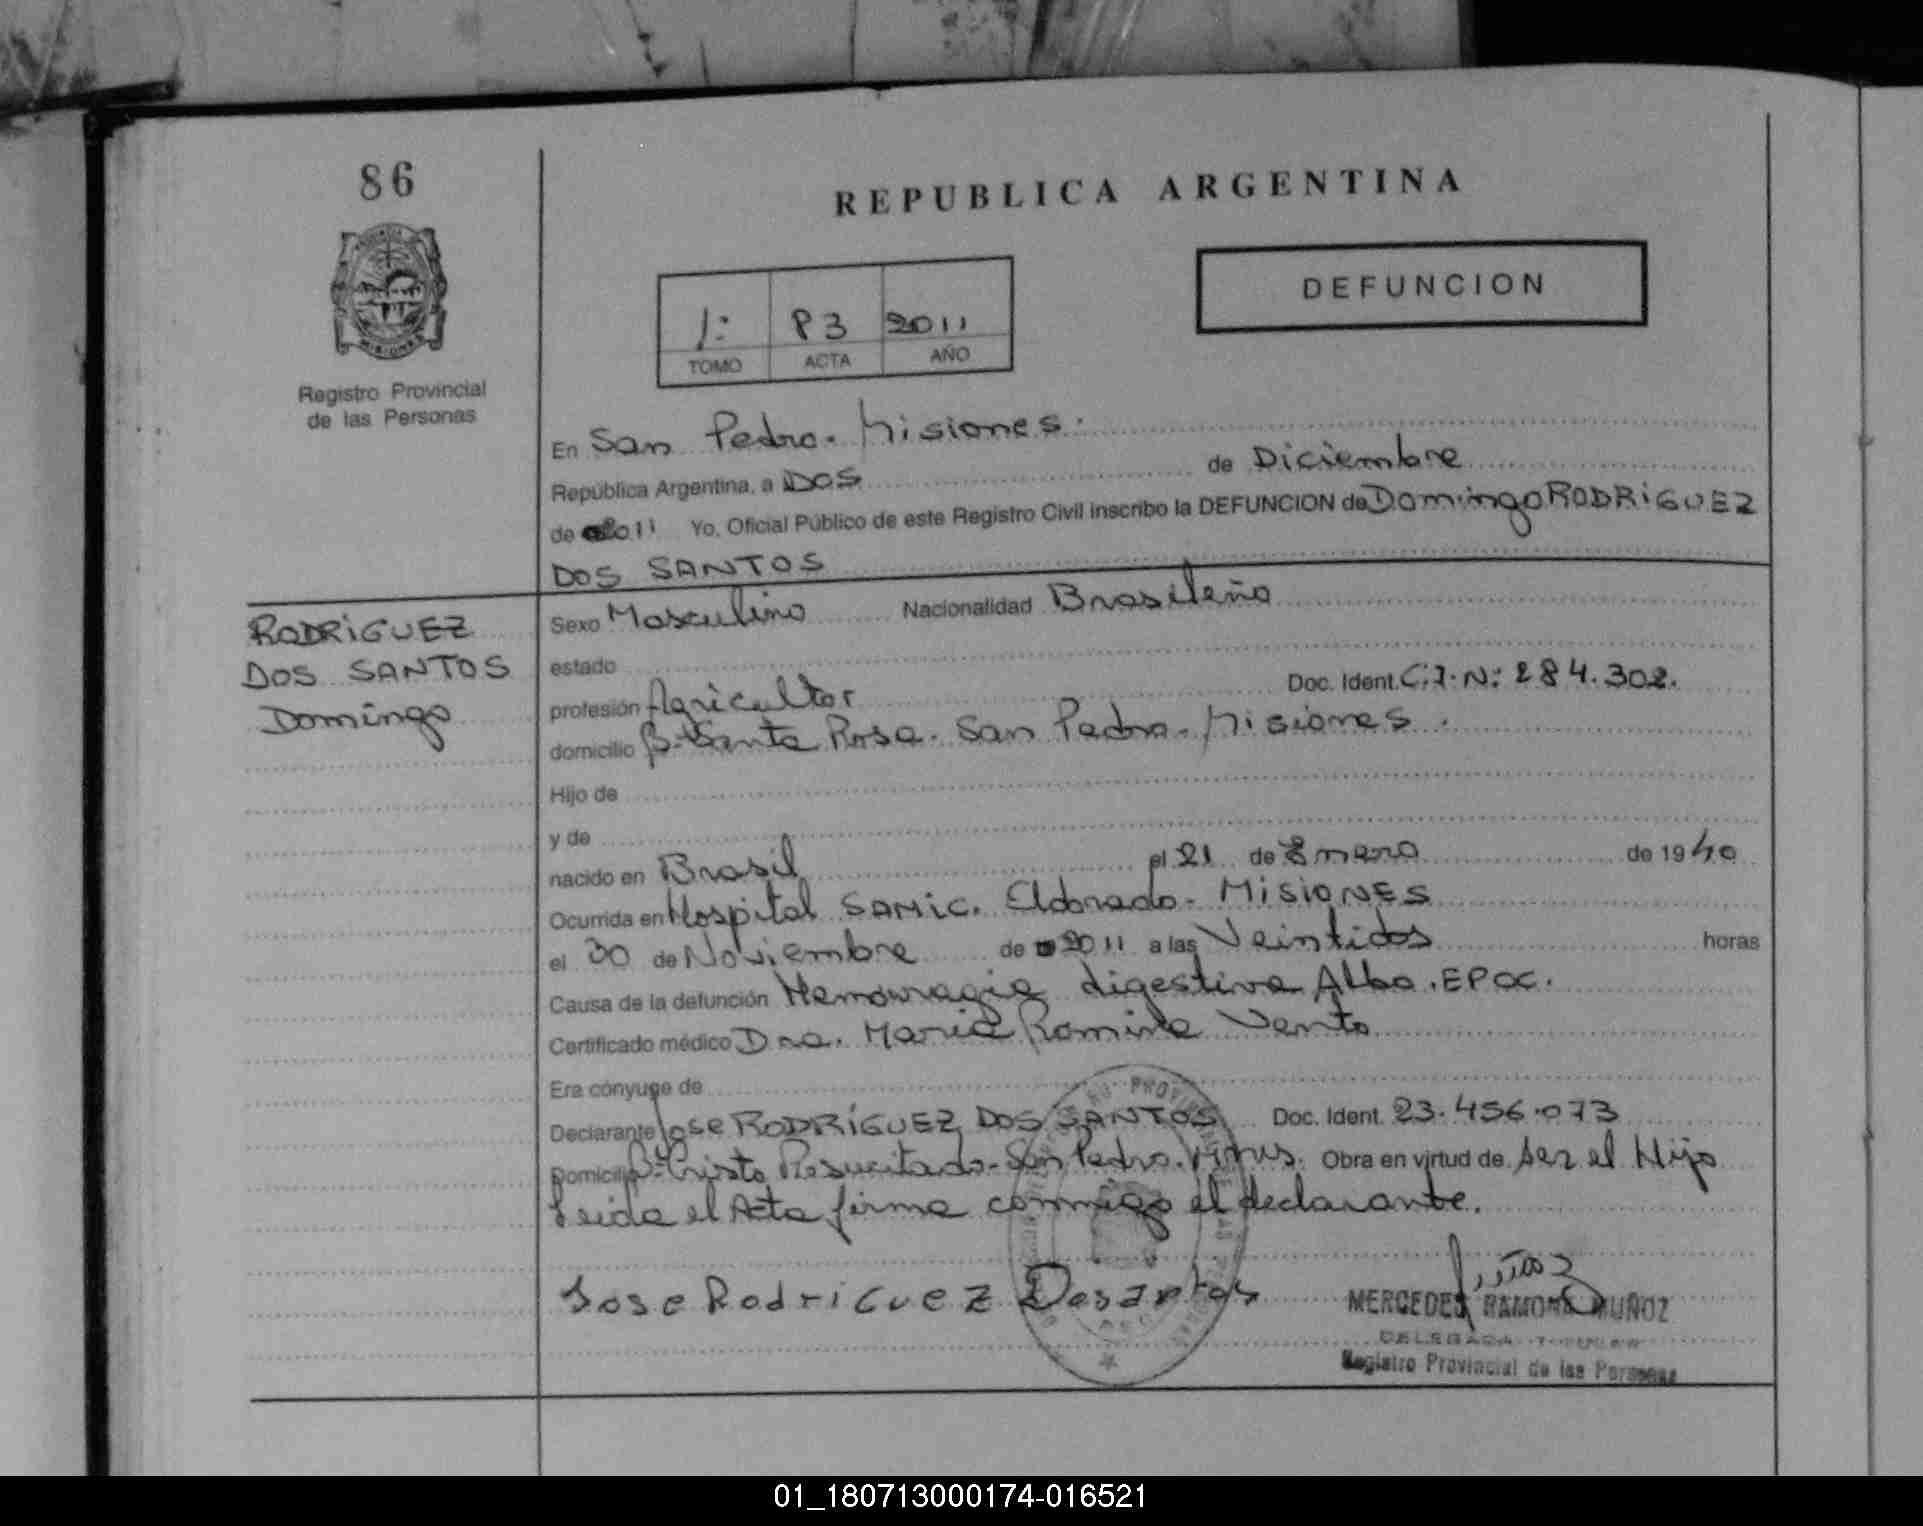 86
REPUBLICA ARGENTINA
PROVINCIA
MISIONES
Registro Provincial
de las Personas
DEFUNCION
1: 83 2011
TOMO ACTA AÑO
En San Pedro. Misiones.
República Argentina, a DOS de Diciembre
de 2011 Yo, Oficial Público de este Registro Civil inscribo la DEFUNCION de Domingo RODRIGUEZ
DOS SANTOS
RODRIGUEZ
DOS SANTOS
Domingo
Sexo Masculino Nacionalidad Brasileña
estado
profesión Agricultor Doc. Ident. C.I. N: 284.302.
domicilio Bº Santa Rosa. San Pedro. Misiones.
Hijo de
y de
nacido en Brasil el 21 de Enero de 1940
Ocurrida en Hospital SAMIC. Eldorado. MISIONES
el 30 de Noviembre de 2011 a las Veintidos horas
Causa de la defunción Hemorragia digestiva Alta. EPOC.
Certificado médico Dra. Maria Romina Vento
Era cónyuge de
Declarante Jose RODRÍGUEZ DOS SANTOS Doc. Ident. 23.456.073
Domicilio Bº Cristo Resucitado. San Pedro. Mnes. Obra en virtud de ser el Hijo
Leida el Acta firma conmigo el declarante.
Jose Rodriguez Dosantos
MERCEDES RAMONA MUÑOZ
DELEGADA TITULAR
Registro Provincial de las Personas
01_180713000174-016521